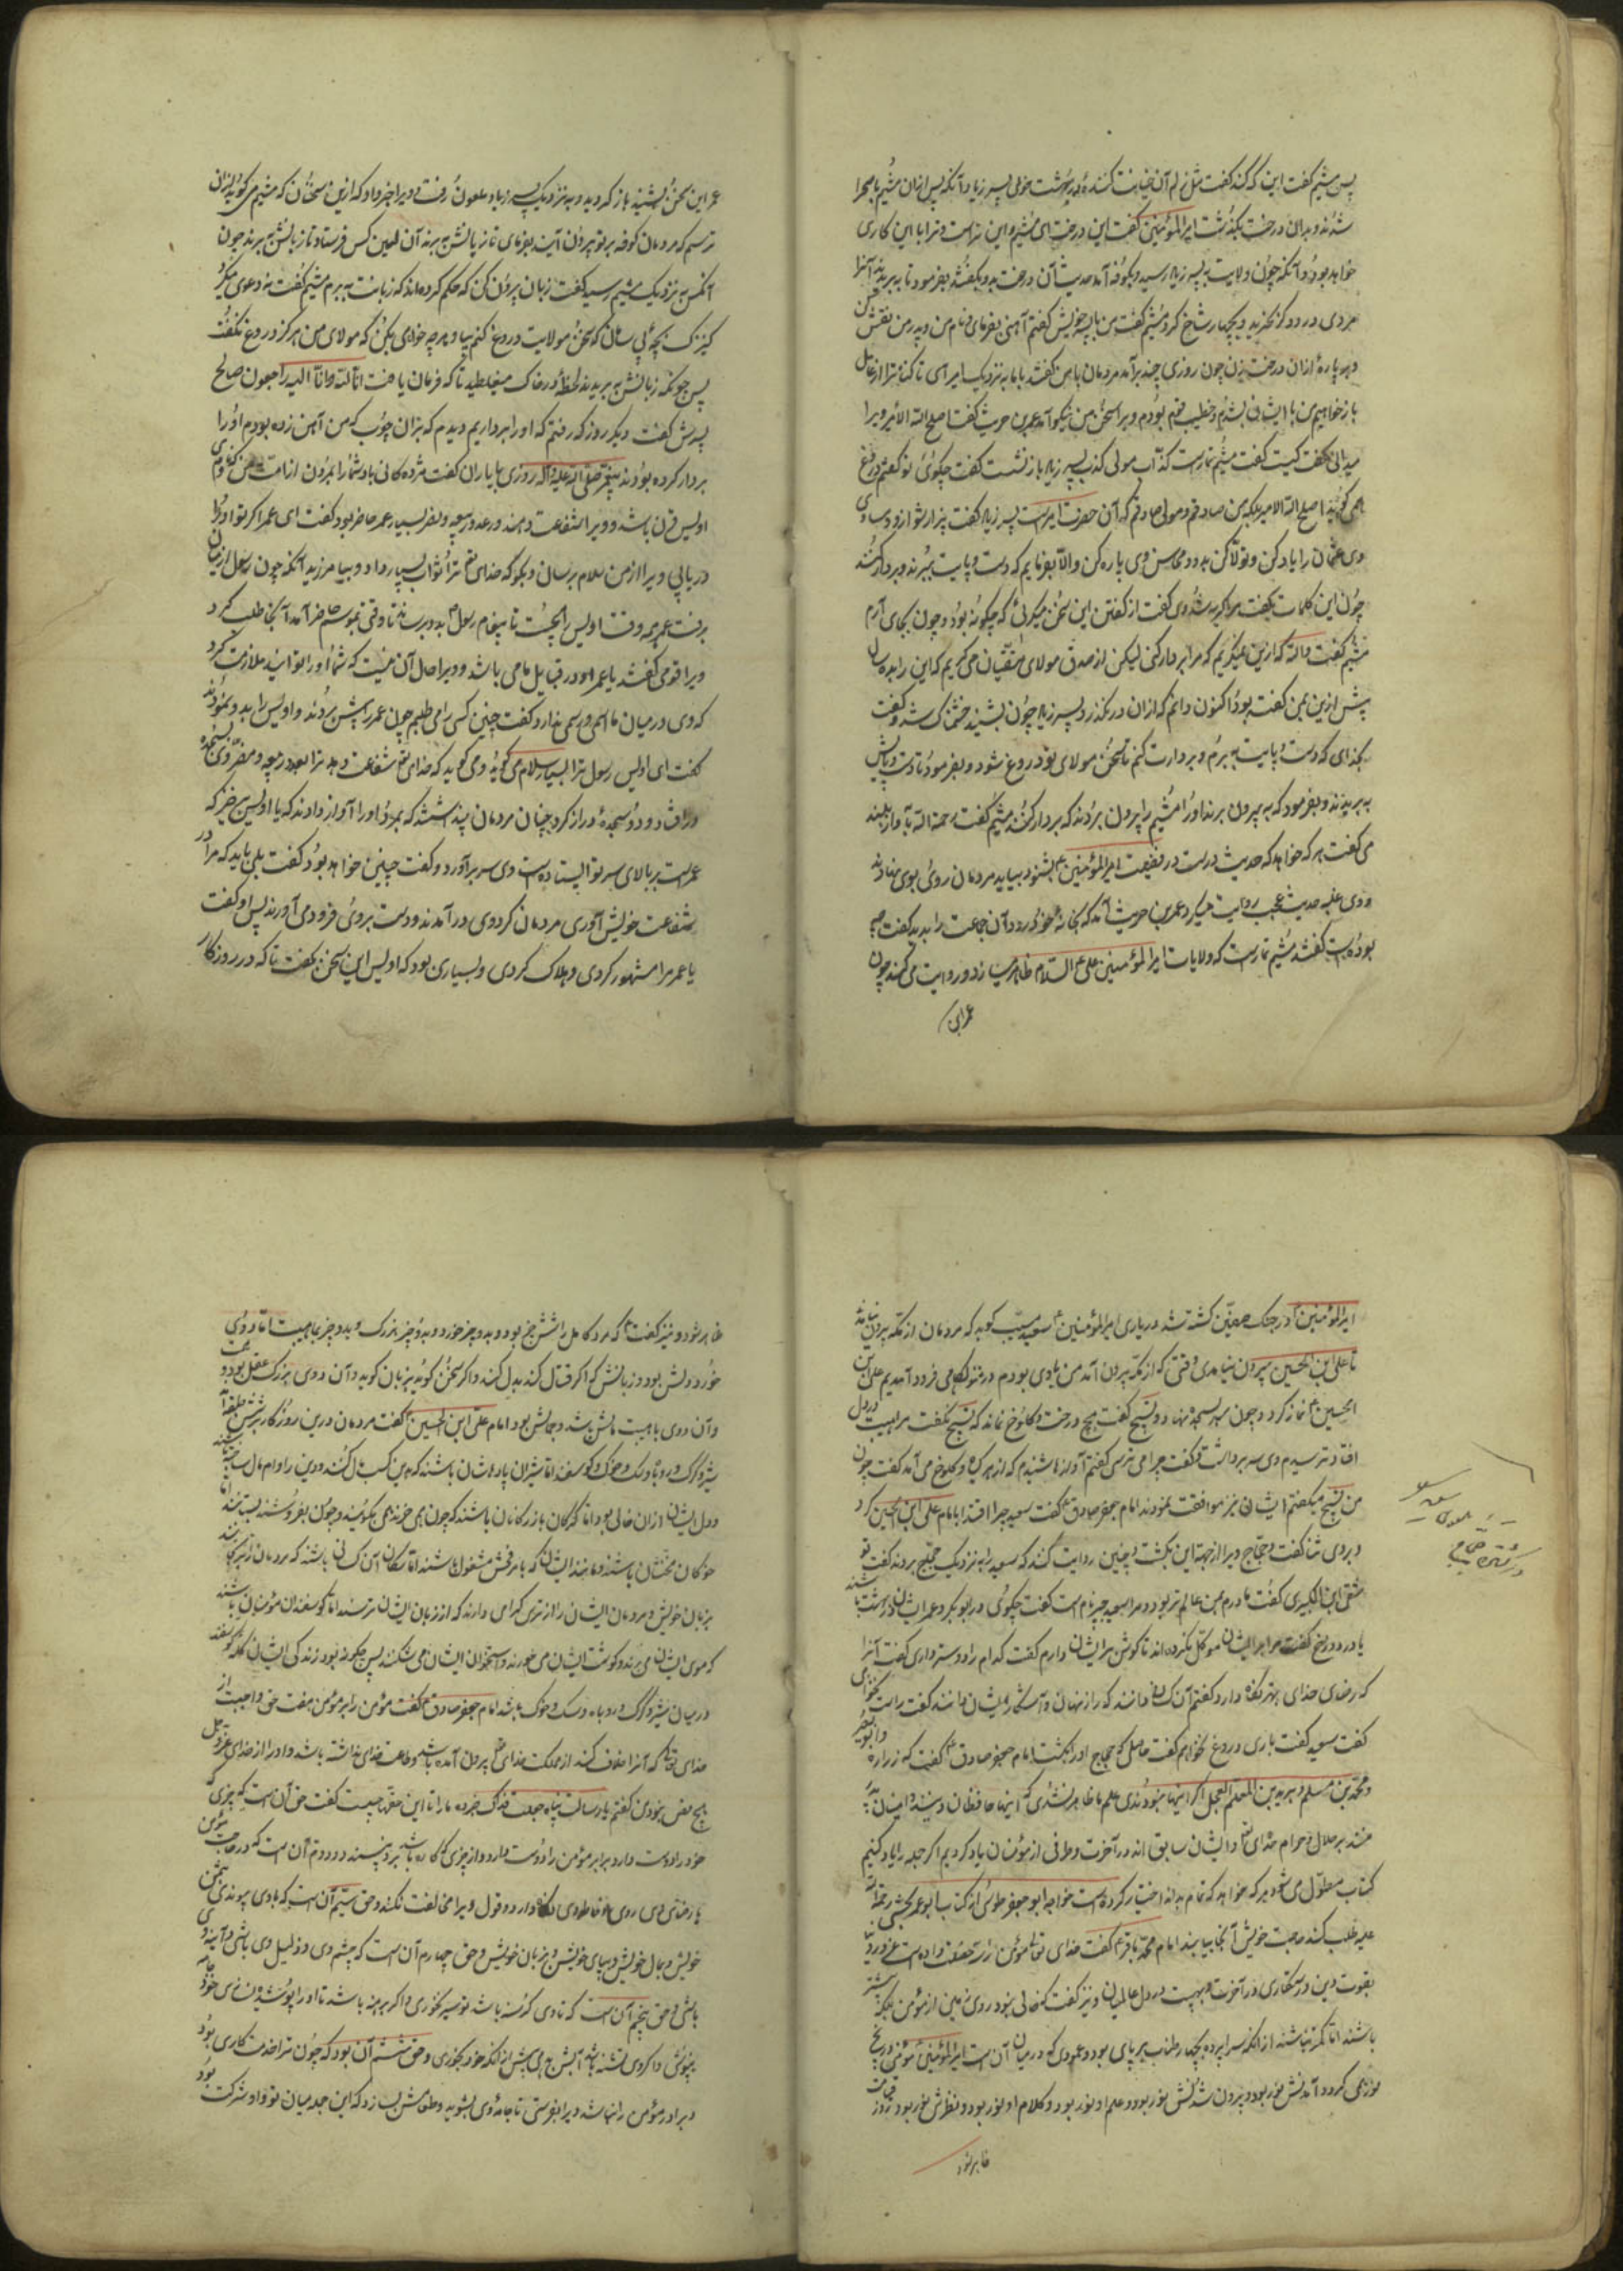 پس میثم گفت این که کند گفت مثل لم آن خیانت کننده بدسرشت خولی پسر زیاد و آنکه پس ازان میثم با صحرا
شدند و بدان درخت بگذشت امیرالمؤمنین گفت این درخت ای میثم این تراست و ترا با این کاری
خواهد بود و آنکه چون ولایت به پسر زیاد رسید و بکوفه آمد حدیث آن درخت بدو بگفتند بفرمود تا ببریدند آنرا
مردی درودگر بخرید و بچهار شاخ کرد میثم گفت من با پسر خویش گفتم آهنی بفرمای و نام من و پدر من نقش کن
و بهر پاره ازان درخت بزن چون روزی چند برآمد مردمان با من گفتند با ما به نزدیک امیر آی تا کنا ترا از عامل
باز خواهیم من با ایشان بشدم و خطیب قوم بودم ویرا سخن من نیکو آمد عمرو بن حریث گفت اصلح الله الامیر ویرا
میدانی گفت کیست گفت میثم تمارست کذّاب مولی کذاب پسر زیاد باز نشست گفت چگوئی تو گفتم دروغ
همی گوید اصلح الله الامیر بلکه من صادقم و مولی صادقم که آن حضرت امیرست پسر زیاد گفت بیزار شو ازو و مساوی
وی عثمان را یاد کن و تولّا کن بدو و محاسن وی یاد کن والّا بفرمایم که دست و پایت ببرند و بر دار کنند
چون این کلمات بگفت مرا گریه شد وی گفت از گفتن این سخن میگریی که چگونه بود و چون بجای آرم
میثم گفت والله که ازین نمیگریم که مرا بر دار کنی لیکن از صدق مولای متقیان می گریم که این را بده سال
پیش ازین بمن گفته بود اکنون دانم که ازان درنگذرد پسر زیاد چون بشنید خشمناک شد و گفت
بخدای که دست و پایت ببرم و بر دارت کنم تا سخن مولای تو دروغ شود و بفرمود تا دست و پایش
ببریدند و بفرمود که به بیرون برند او را میثم را بیرون بردند که بردار کنند میثم گفت رحمه الله به آواز بلند
می گفت هر که خواهد که حدیث درست در فضیلت امیرالمؤمنین بشنود بیاید مردمان روی بوی نهادند
و وی علیه حدیث عجب روایت میکرد عمرو بن حریث آمد که بخانه خود رود آن جماعت را بدید گفت چه
بوده است گفتند میثم تمارست که ولایات امیرالمؤمنین علی علیه السلام ظاهر میسازد و روایت می کند چون
عمر این
عمر این سخن بشنید باز گردید و به نزدیک پسر زیاد ملعون رفت و ویرا خبر داد که ازین سخنان که میثم می گوید ازان
ترسم که مردمان کوفه بر تو بیرون آیند بفرمای تا زبانش ببرند آن لعین کس فرستاد تا زبانش ببرند چون
آنکس به نزدیک میثم رسید گفت زبان بیرون کن که حکم کرده اند که زبانت ببرم میثم گفت نه دعوی میکرد
کنیزک بچه ئی سال که سخن مولایت دروغ کنم بیا و هر چه خواهی بکن که مولای من هرگز دروغ نگفت
پس چونکه زبانش ببریدند لحظه در خاک میغلطید تا که فرمان یافت انا لله وانا الیه راجعون صالح
پسرش گفت دیگر روز که رفتم که او را برداریم دیدم که بران چوب که من آهن زده بودم او را
بردار کرده بودند پیغمبر صلی الله علیه وآله روزی با یاران گفت مژده گانی باد شما را بمردی از امت من که نام وی
اویس قرن باشد و ویرا شفاعت دهند در عدد ربیعه و مضر بسیار عمر حاضر بود گفت ای عمر اگر تو او را
دریابی ویرا از من سلام برسان و بگو که خدای تعالی ترا ثواب بسیار داد و بیامرزید آنکه چون رسول از میان
برفت عمر بهر وقت اویس را میجست تا پیغام رسول بدو برساند تا وقتی بموسم حاضر آمد آنجا طلب کرد
ویرا قومی گفتند یا عمر او در قبایل ما می باشد و ویرا حال آن نیست که شما او را توانید ملازمت کرد
که وی در میان ما اسمی و رسمی ندارد گفت چنین کسی را می طلبم چون عمر را پیش بردند و اویس را بدو نمودند
گفت ای اویس رسول ترا بسیار سلام می گوید و می گوید که خدای تعالی شفاعت دهد ترا بعدد ربیعه و مضر وی بسجده
درافتاد و سجده دراز کرد چنان مردمان پنداشتند که بمرد او را آواز دادند که یا اویس برخیز که
عمرست بر بالای سر تو ایستاده است وی سر برآورد و گفت چنین خواهد بود گفت بلی باید که مرا در
شفاعت خویش آوری مردمان گرد وی درآمدند و دست بر وی فرود می آورند پس او گفت
یا عمر مرا مشهور کردی و هلاک کردی و بسیاری بود که اویس این سخن بگفت تا که در روزگار
امیرالمؤمنین در جنگ صفین کشته شد در یاری امیرالمؤمنین سعید مسیّب گوید که مردمان از مکه بیرون نیامدند
تا علی بن الحسین بیرون نیامدی وقتی که از مکه بیرون آمد من با وی بودم در منزلگاهی فرود آمدیم علی بن
الحسین نماز کرد و چون سر بسجده نهاد و تسبیح گفت هیچ درخت و کلوخ نماند که تسبیح نگفت مرا هیبت در دل
افتاد و ترسیدم وی سر برداشت و گفت چرا می ترسی گفتم آوازها شنیدم که از هر گیاه و کلوخ می آمد گفت چون
من تسبیح میگفتم ایشان نیز موافقت نمودند امام جعفر صادق گفت سعید چرا اقتدا بامام علی بن الحسین کرد
و بر وی ثنا گفت و حجاج ویرا از جهت این بکشت و چنین روایت کنند که سعید را به نزدیک حجاج بردند گفت تو
شقی ابن الکبیری گفت مادرم بمن عالم تر بود و مرا سعید جبیر نام است گفت چگوئی در ابوبکر و عمر ایشان در بهشت باشند
یا در دوزخ گفت مرا بر ایشان موکّل نکرده اند تا گوش بر ایشان دارم گفت کدام را دوستر داری گفت آنرا
که رضای خدای بهتر نگاه دارد گفتم آن کس داند که راز نهان و آشکار ایشان داند گفت راست نخواهی
گفت سعید گفت باری دروغ نخواهم گفت حاصل که حجاج او را بکشت امام جعفر صادق گفت که زراره و ابو بصیر
و محمد بن مسلم و برید بن المعلم العجلی اگر اینها نبودندی علم ما ظاهر نشدی که اینها حافظان دین اند و امینان پدر
منند بر حلال و حرام خدای تعالی و ایشان سابق اند در آخرت و طرفی از مؤمنان یاد کردیم اگر جمله را یاد کنیم
کتاب مطول می شود و هر که خواهد که تمام بداند اختیار کرده است خواجه ابو جعفر طوسی از کتاب ابو عمر کشی رحمة الله
علیه طلب کند حاجت خویش آنجا بیابد امام محمد باقر گفت خدای تعالی مؤمن را سه خصلت داده است عز در دنیا
بقوت دین و رستگاری در آخرت و هیبت در دل عالمیان و نیز گفت که خالی نبود روی زمین از مؤمن بلکه بیشتر
باشند اما کمتر نباشند از انکه سراپرده بچهار طناب بر پای بود و عمودی که در میان آن است امیرالمؤمنین مؤمن در پنج
نور می گردد آمدنش نور بود و بیرون شدنش نور بود و علم او نور بود و کلام او نور بود و نظرش نور بود روز قیامت
ظاهر شود
ظاهر شود و نیز گفت که مرد کامل را شش چیز بود دو بدو چیز خورد و بدو چیز بزرگ و بدو چیز با هیبت اما دو ئی
خورد دلش بود و زبانش که اگر قتال کند بدل کند و اگر سخن گوید بزبان گوید و آن دوی بزرگ عقل بود و همت
وآن دوی با هیبت مالش باشد و جمالش بود امام علی بن الحسین گفت مردمان درین روزگار شش طبقه اند
شیر و گرگ و روباه و سگ و خوک و گوسفند اما شیران پادشاهان باشند که بدین کسب مال کنند و دین را وام مال ساخته
و دل ایشان ازان خالی بود اما گرگان بازرگانان باشند که چون بخرند همی نکوهند و چون بفروشند بستایند اما
خوکان مخنثان باشند و مانند ایشان که بامر فحش مشغول باشند اما سگان آن کسانی باشند که مردمان را برنجانند
بزبان خویش و مردمان ایشان را از ترس گرامی دارند که از زبان ایشان ترسند اما گوسفندان مؤمنان باشند
که موی ایشان می برند و گوشت ایشان می خورند و استخوان ایشان می شکنند پس چگونه بود زندگی ایشان که گوسفند
در میان شیر و گرگ و روباه و سگ و خوک باشد امام جعفر صادق گفت مؤمن را بر مؤمن هفت حق واجبست از
خدای تعالی که آنرا خلاف کند از مملکت خدای تعالی بیرون آمده باشد و طاعت خدای نداشته باشد و او را از خدای عز و جل
هیچ نصیب نبود من گفتم یا رسالت پناه جعلت فداک خبر ده ما را تا این حقها چیست گفت حق آن است که چیزی که
خود را دوست دارد برابر مؤمن را دوست دارد و از چیزی که کاره باشد بر وی نپسندد و دوم آن است که در حاجت مؤمن
با رضای وی روی و خاطر وی نگاه دارد و قول ویرا مخالفت نکند و حق سیم آن است که با وی پیوندی بتن
خویش و بمال خویش و بپای خویش و بزبان خویش و حق چهارم آن است که چشم وی و دلیل وی باشی و آینه وی
باشی و حق پنجم آن است که تا وی گرسنه باشد تو سیر نخوری و اگر برهنه باشد تا او را پوشش نبود جامه خود
نپوشی و اگر وی تشنه باشد آبش دهی پیش از انکه خود بخوری و حق ششم آن بود که چون ترا خدمتکاری بود
و برادر مؤمن را نباشد ویرا بفرستی تا جامه وی بشوید و طعامش بسازد که این جمله میان تو و او شرکت بود